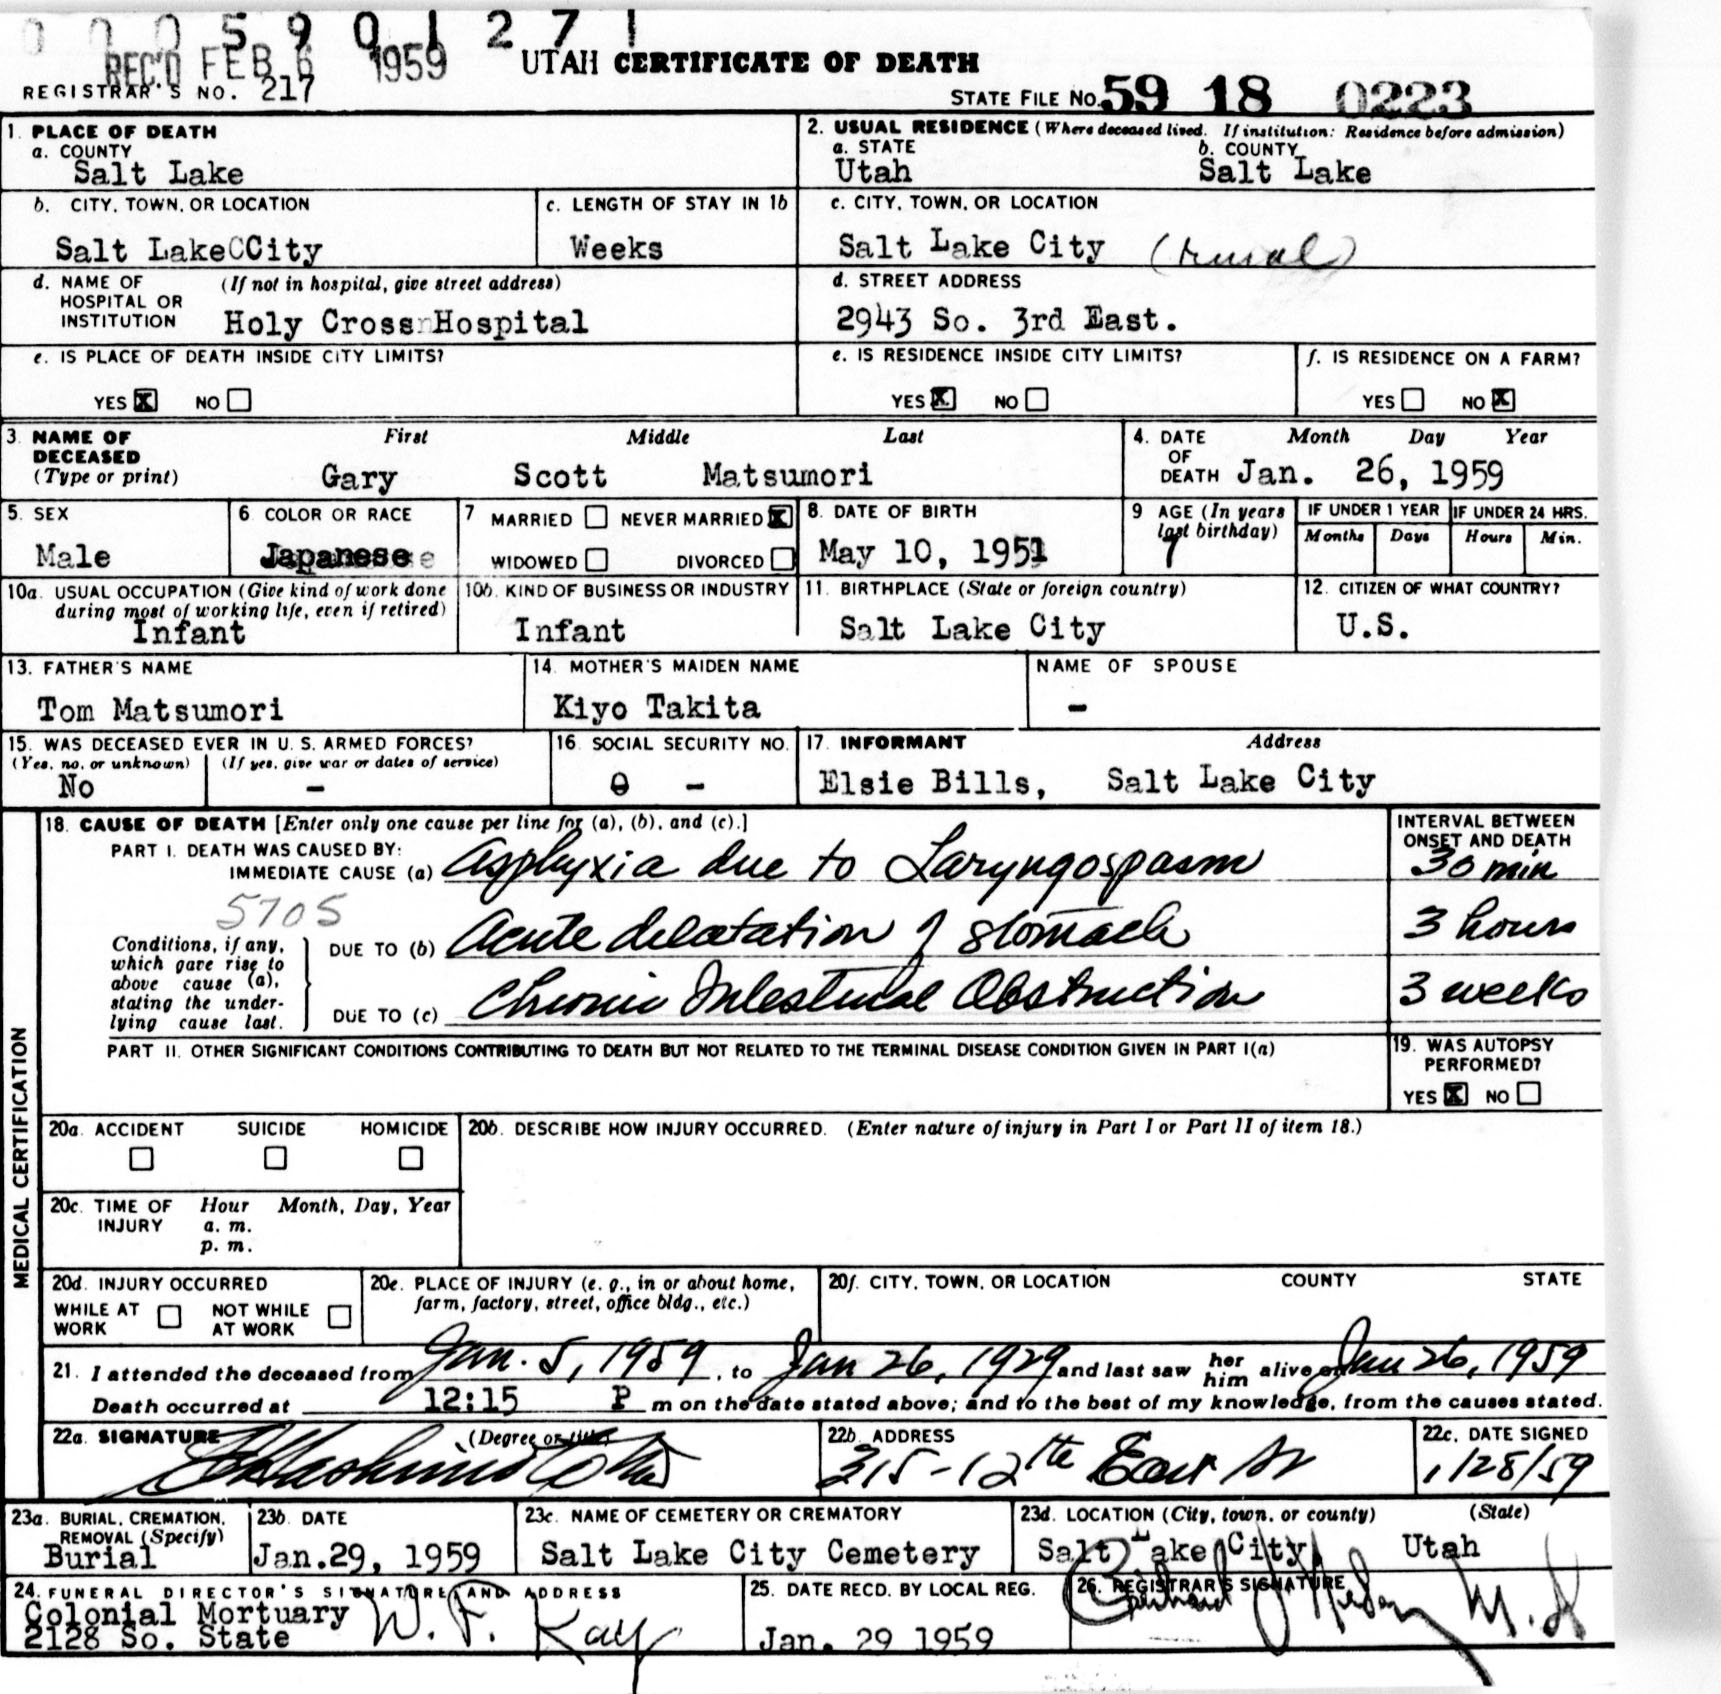 0 0 0 5 9 0 1 2 7 1
REC'D FEB 6 1959
UTAH CERTIFICATE OF DEATH
REGISTRAR'S NO. 217
STATE FILE NO. 59 18 0223
1. PLACE OF DEATH
a. COUNTY
Salt Lake
2. USUAL RESIDENCE (Where deceased lived. If institution: Residence before admission)
a. STATE b. COUNTY
Utah Salt Lake
b. CITY, TOWN, OR LOCATION
Salt LakeCCity
c. LENGTH OF STAY IN 1b
Weeks
c. CITY, TOWN, OR LOCATION
Salt Lake City (rural)
d. NAME OF HOSPITAL OR INSTITUTION (If not in hospital, give street address)
Holy Cross Hospital
d. STREET ADDRESS
2943 So. 3rd East.
e. IS PLACE OF DEATH INSIDE CITY LIMITS?
YES X NO
e. IS RESIDENCE INSIDE CITY LIMITS?
YES X NO
f. IS RESIDENCE ON A FARM?
YES NO X
3. NAME OF DECEASED (Type or print)
First Middle Last
Gary Scott Matsumori
4. DATE OF DEATH
Month Day Year
Jan. 26, 1959
5. SEX
Male
6. COLOR OR RACE
Japanese
7 MARRIED NEVER MARRIED X
WIDOWED DIVORCED
8. DATE OF BIRTH
May 10, 1951
9 AGE (In years last birthday)
7
IF UNDER 1 YEAR
Months Days
IF UNDER 24 HRS.
Hours Min.
10a. USUAL OCCUPATION (Give kind of work done during most of working life, even if retired)
Infant
10b. KIND OF BUSINESS OR INDUSTRY
Infant
11. BIRTHPLACE (State or foreign country)
Salt Lake City
12. CITIZEN OF WHAT COUNTRY?
U.S.
13. FATHER'S NAME
Tom Matsumori
14. MOTHER'S MAIDEN NAME
Kiyo Takita
NAME OF SPOUSE
-
15. WAS DECEASED EVER IN U. S. ARMED FORCES?
(Yes, no, or unknown) (If yes, give war or dates of service)
No -
16. SOCIAL SECURITY NO.
0 -
17. INFORMANT Address
Elsie Bills, Salt Lake City
MEDICAL CERTIFICATION
18. CAUSE OF DEATH [Enter only one cause per line for (a), (b), and (c).]
INTERVAL BETWEEN ONSET AND DEATH
PART I. DEATH WAS CAUSED BY:
IMMEDIATE CAUSE (a) Asphyxia due to Laryngospasm 30 min
5705
Conditions, if any, which gave rise to above cause (a), stating the underlying cause last.
DUE TO (b) Acute delatation of stomach 3 hours
DUE TO (c) Chronic Intestinal Obstruction 3 weeks
PART II. OTHER SIGNIFICANT CONDITIONS CONTRIBUTING TO DEATH BUT NOT RELATED TO THE TERMINAL DISEASE CONDITION GIVEN IN PART I(a)
19. WAS AUTOPSY PERFORMED?
YES X NO
20a. ACCIDENT SUICIDE HOMICIDE
20b. DESCRIBE HOW INJURY OCCURRED. (Enter nature of injury in Part I or Part II of item 18.)
20c. TIME OF INJURY Hour Month, Day, Year
a. m.
p. m.
20d. INJURY OCCURRED
WHILE AT WORK NOT WHILE AT WORK
20e. PLACE OF INJURY (e. g., in or about home, farm, factory, street, office bldg., etc.)
20f. CITY, TOWN, OR LOCATION COUNTY STATE
21. I attended the deceased from Jan. 5, 1959, to Jan 26, 1929 and last saw her him alive on Jan 26, 1959
Death occurred at 12:15 P m on the date stated above; and to the best of my knowledge, from the causes stated.
22a. SIGNATURE (Degree or title)
22b. ADDRESS
315-12th East St
22c. DATE SIGNED
1/28/59
23a. BURIAL, CREMATION, REMOVAL (Specify)
Burial
23b. DATE
Jan.29, 1959
23c. NAME OF CEMETERY OR CREMATORY
Salt Lake City Cemetery
23d. LOCATION (City, town, or county) (State)
Salt Lake City, Utah
24. FUNERAL DIRECTOR'S SIGNATURE AND ADDRESS
Colonial Mortuary
2128 So. State
W. F. Kay
25. DATE RECD. BY LOCAL REG.
Jan. 29 1959
26. REGISTRAR'S SIGNATURE
M.D